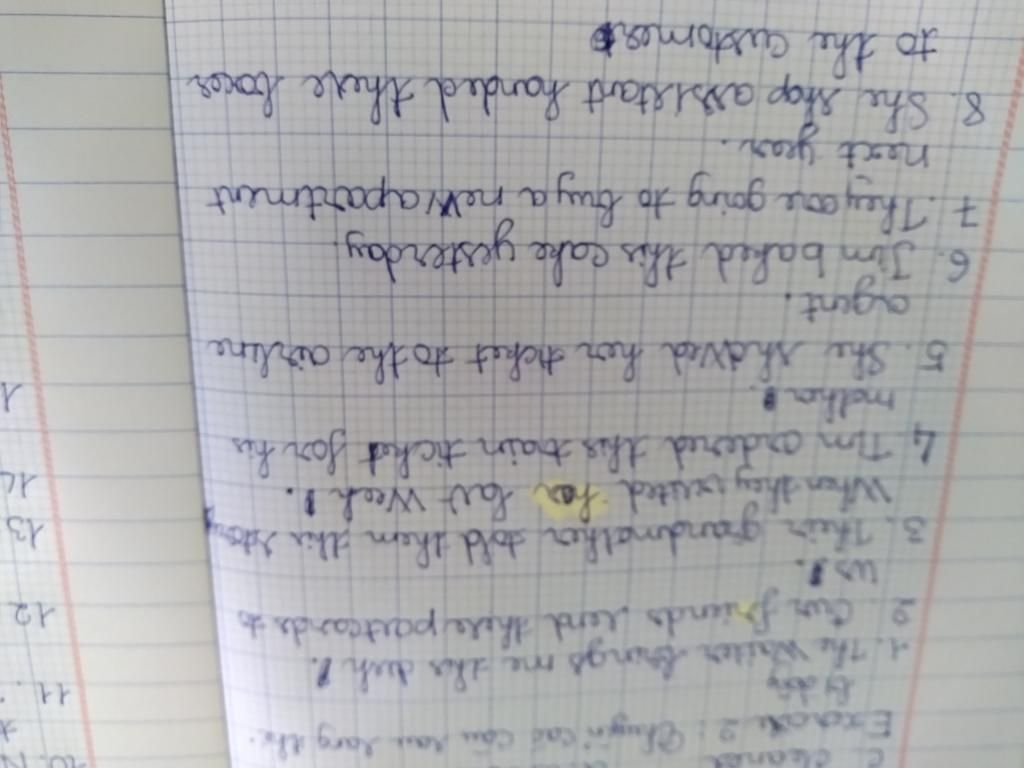 c. cleaned
Exercise 2: Chuyển các câu sau sang thể
bị động
1. The Waiter brings me this dish.
2. Our friends send these postcards to
us.
3. Their grandmother told them this story
When they visited her last Week.
4. Tim ordered this train ticket for his
mother.
5. She showed her ticket to the airline
agent.
6. Jim baked this cake yesterday.
7. They are going to buy a new apartment
next year.
8. She shop assistant handed these boxes
to the customer
10. N
11.
12
13
14
1